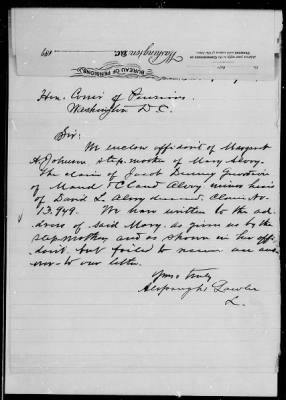 Washington, D.C.
BUREAU OF PENSIONS
Hon. Comr of Pensions
Washington D.C.
Sir:
We enclose affidavit of Margaret
A. Johnson, step-mother of Mary Alvey.
The claim of Jacob Guardian
of Maud & Claud Alvey, minor heirs
of David L. Alvey deceased, Claim No.
13.949. We have written to the ad-
dress of said Mary, as given us by the
stepmother, and as shown in her affi-
davit, but failed to receive an ans-
wer to our letter.
Yours truly
Lawler
L.